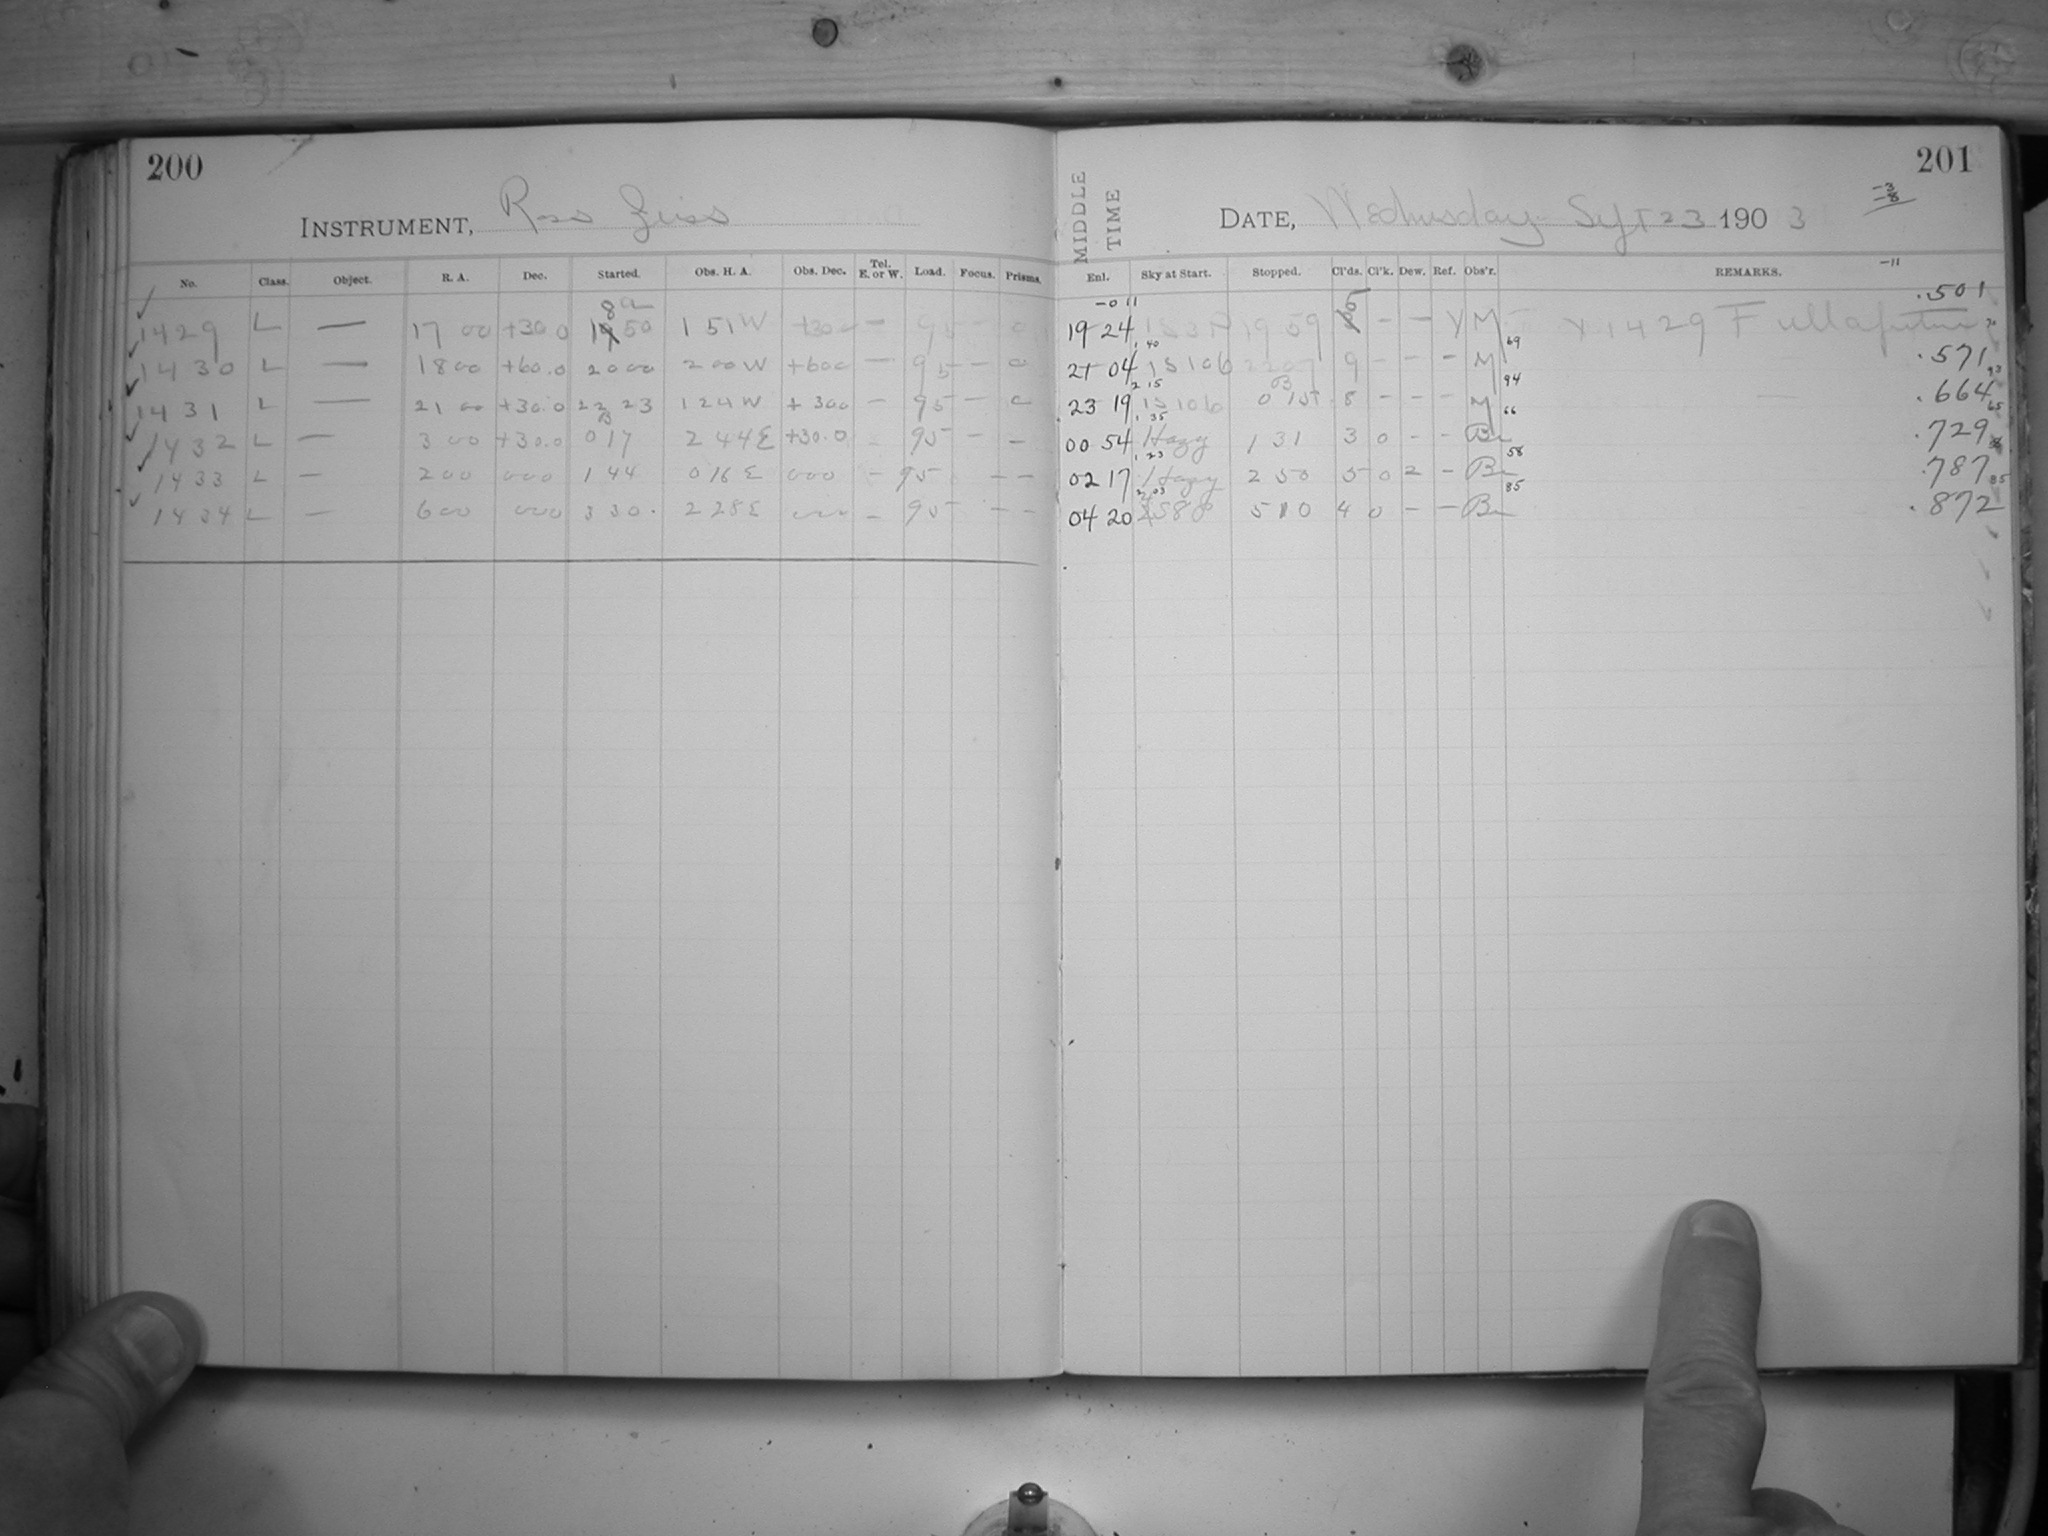 200
INSTRUMENT, Ross Zeiss
No. Class. Object. R. A. Dec. Started. Obs. H. A. Obs. Dec. Tel. E. or W. Load. Focus. Prisms.
8
1429 L — 17 00 +30 0 50 1 51 W +30 — 95 — 0
1430 L — 18 00 +60.0 20 00 2 00 W +60 0 — 95 — 0
1431 L — 21 00 +30.0 22 23 1 24 W +30 0 — 95 — 0
1432 L — 3 00 +30.0 0 17 2 44 E +30.0 – 95 – –
1433 L — 2 00 0 00 1 44 0 16 E 0 00 – 95 – –
1434 L — 6 00 0 00 3 30 2 28 E 0 00 – 95 – –
201
MIDDLE TIME
DATE, Wednesday Sept 23 1903
-3
-8
-11
Enl. Sky at Start. Stopped. Cl'ds. Cl'k. Dew. Ref. Obs'r. REMARKS.
-0 11
19 24 19 59 5 – – Y M Y 1429 F .501
1 40 69
21 04 1S 106 9 – – – M .571
2 15 94 93
23 19 1S 106 8 – – – M .664
1 35 66 65
00 54 Hazy 1 31 3 0 – – Br .729
1 23 58
02 17 Hazy 2 50 5 0 2 – Br .787
2 03 85 85
04 20 5 10 4 0 – – Br .872